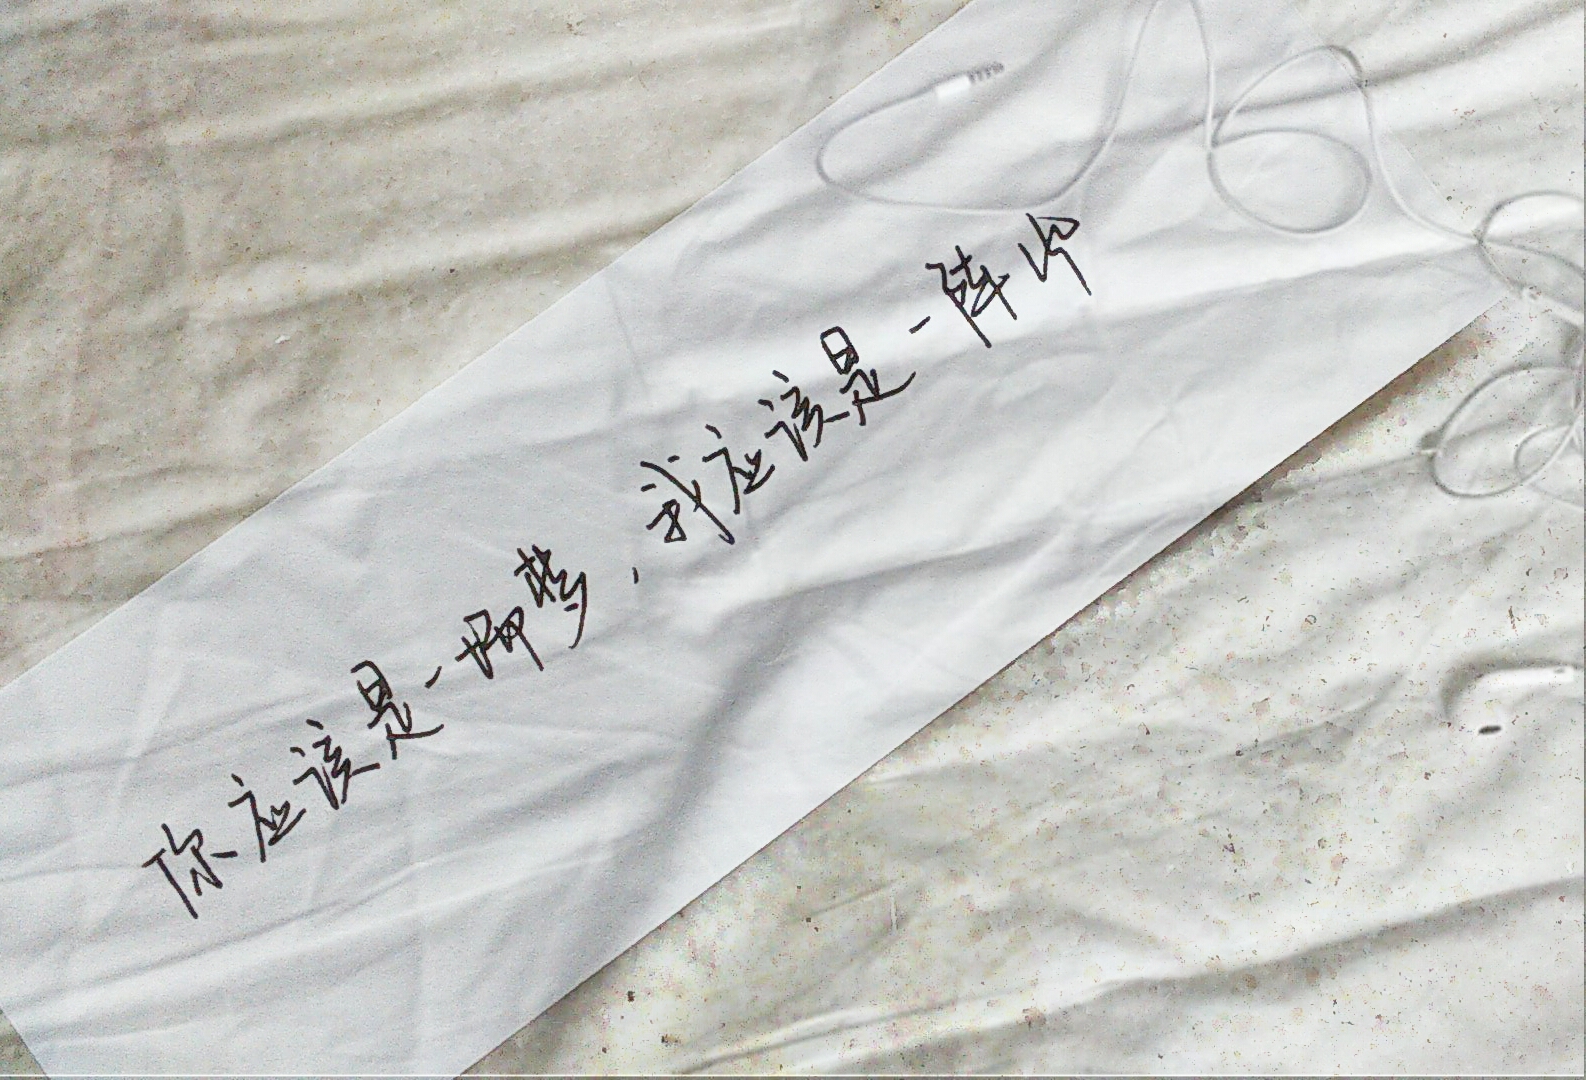 你应该是一场梦，我应该是一阵风